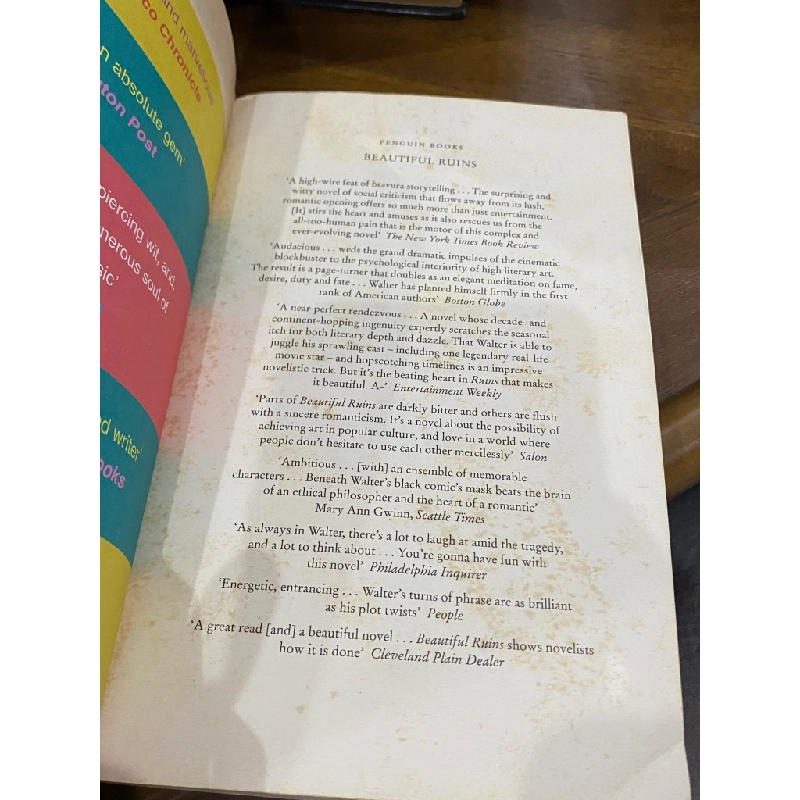 and marvelous
co Chronicle
n absolute gem'
gton Post
piercing wit, and,
nerous soul of
sic'
d writer'
ooks
PENGUIN BOOKS
BEAUTIFUL RUINS
'A high-wire feat of bravura storytelling . . . The surprising and
witty novel of social criticism that flows away from its lush,
romantic opening offers so much more than just entertainment.
[It] stirs the heart and amuses as it also rescues us from the
all-too-human pain that is the motor of this complex and
ever-evolving novel' The New York Times Book Review
'Audacious . . . weds the grand dramatic impulses of the cinematic
blockbuster to the psychological interiority of high literary art.
The result is a page-turner that doubles as an elegant meditation on fame,
desire, duty and fate . . . Walter has planted himself firmly in the first
rank of American authors' Boston Globe
'A near-perfect rendezvous . . . A novel whose decade- and
continent-hopping ingenuity expertly scratches the seasonal
itch for both literary depth and dazzle. That Walter is able to
juggle his sprawling cast – including one legendary real-life
movie star – and hopscotching timelines is an impressive
novelistic trick. But it's the beating heart in Ruins that makes
it beautiful. A–' Entertainment Weekly
'Parts of Beautiful Ruins are darkly bitter and others are flush
with a sincere romanticism. It's a novel about the possibility of
achieving art in popular culture, and love in a world where
people don't hesitate to use each other mercilessly' Salon
'Ambitious . . . [with] an ensemble of memorable
characters . . . Beneath Walter's black comic's mask beats the brain
of an ethical philosopher and the heart of a romantic'
Mary Ann Gwinn, Seattle Times
'As always in Walter, there's a lot to laugh at amid the tragedy,
and a lot to think about . . . You're gonna have fun with
this novel' Philadelphia Inquirer
'Energetic, entrancing . . . Walter's turns of phrase are as brilliant
as his plot twists' People
'A great read [and] a beautiful novel . . . Beautiful Ruins shows novelists
how it is done' Cleveland Plain Dealer